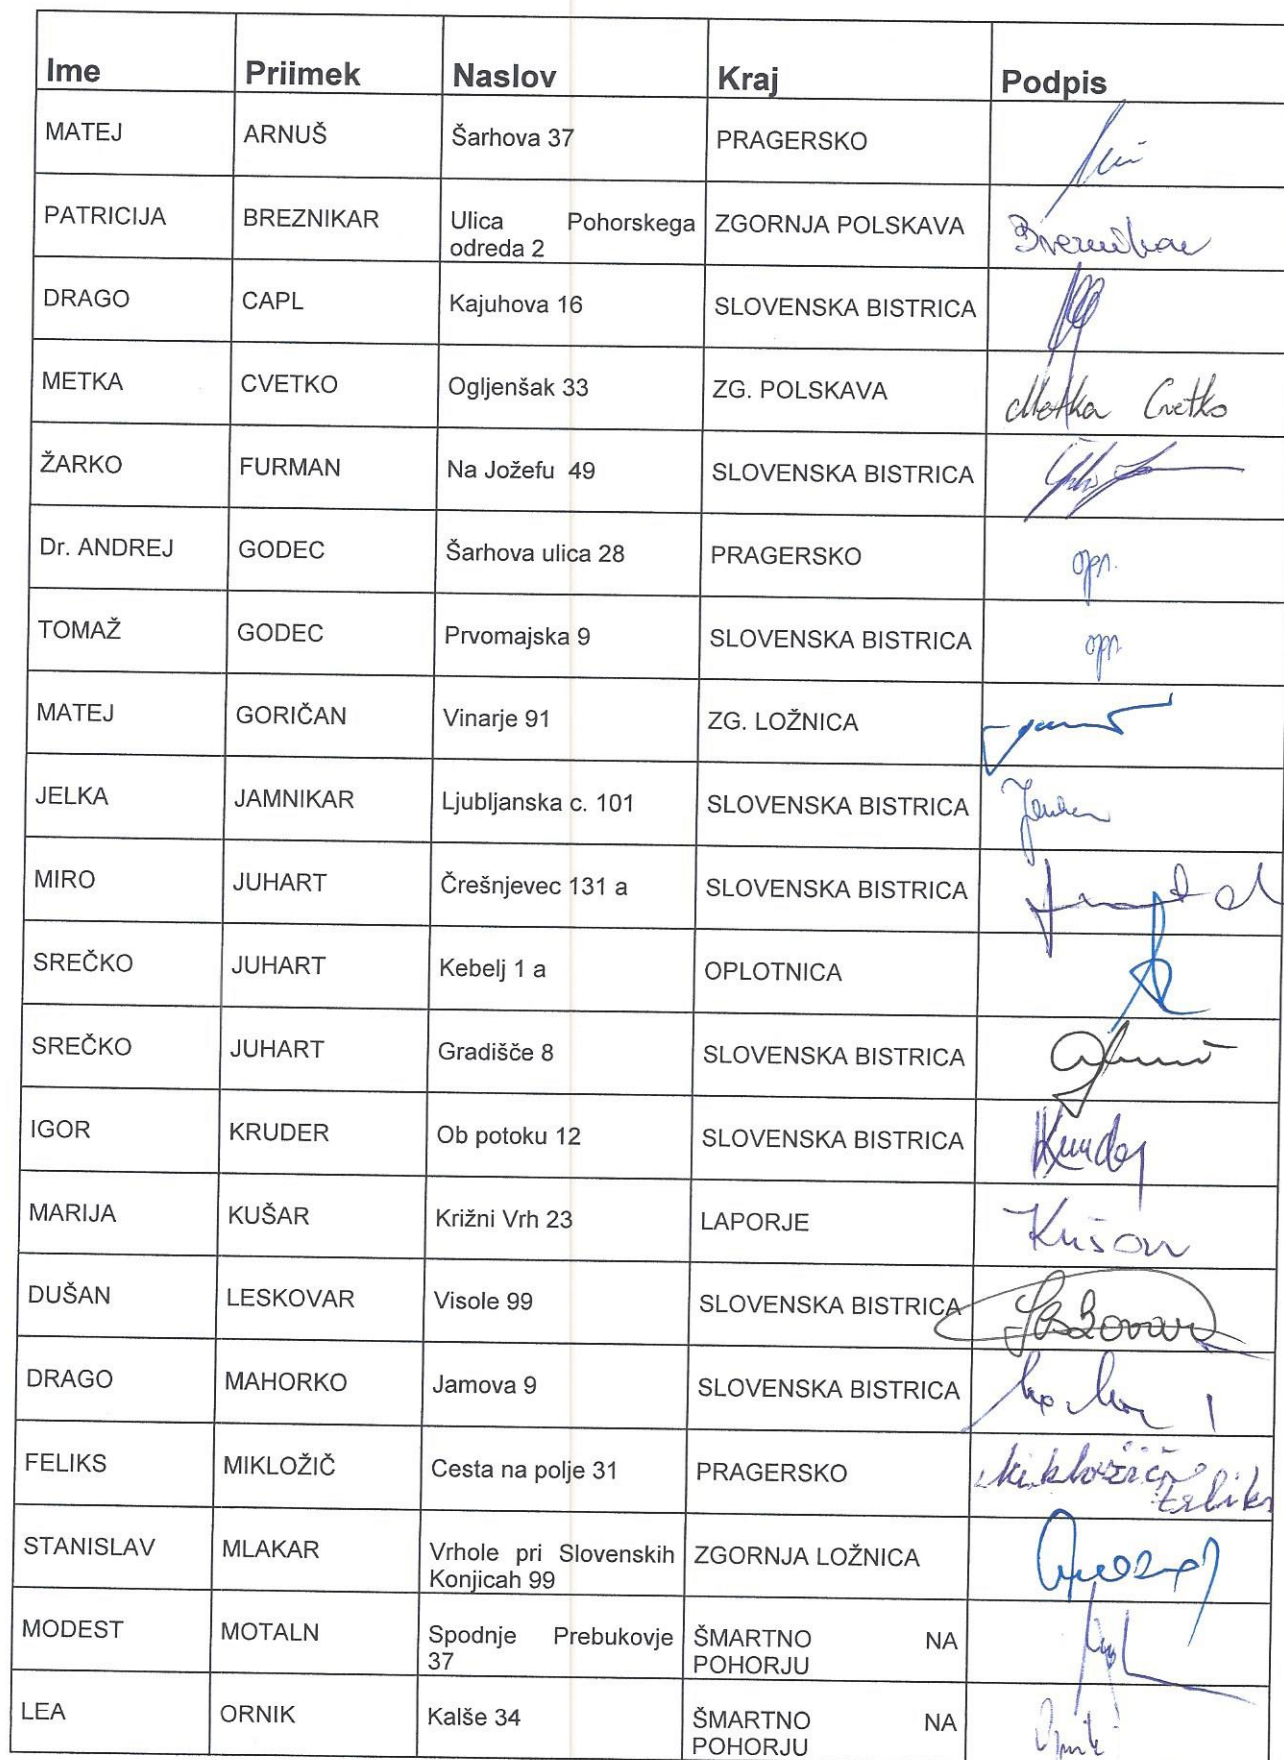 Ime Priimek Naslov Kraj Podpis
MATEJ ARNUŠ Šarhova 37 PRAGERSKO
PATRICIJA BREZNIKAR Ulica Pohorskega ZGORNJA POLSKAVA Breznikar
odreda 2
DRAGO CAPL Kajuhova 16 SLOVENSKA BISTRICA
METKA CVETKO Ogljenšak 33 ZG. POLSKAVA Metka Cvetko
ŽARKO FURMAN Na Jožefu 49 SLOVENSKA BISTRICA
Dr. ANDREJ GODEC Šarhova ulica 28 PRAGERSKO opr.
TOMAŽ GODEC Prvomajska 9 SLOVENSKA BISTRICA opr.
MATEJ GORIČAN Vinarje 91 ZG. LOŽNICA
JELKA JAMNIKAR Ljubljanska c. 101 SLOVENSKA BISTRICA
MIRO JUHART Črešnjevec 131 a SLOVENSKA BISTRICA
SREČKO JUHART Kebelj 1 a OPLOTNICA
SREČKO JUHART Gradišče 8 SLOVENSKA BISTRICA
IGOR KRUDER Ob potoku 12 SLOVENSKA BISTRICA
MARIJA KUŠAR Križni Vrh 23 LAPORJE Kušar
DUŠAN LESKOVAR Visole 99 SLOVENSKA BISTRICA Leskovar
DRAGO MAHORKO Jamova 9 SLOVENSKA BISTRICA
FELIKS MIKLOŽIČ Cesta na polje 31 PRAGERSKO Mikložič
Feliks
STANISLAV MLAKAR Vrhole pri Slovenskih ZGORNJA LOŽNICA
Konjicah 99
MODEST MOTALN Spodnje Prebukovje ŠMARTNO NA
37 POHORJU
LEA ORNIK Kalše 34 ŠMARTNO NA Ornik
POHORJU